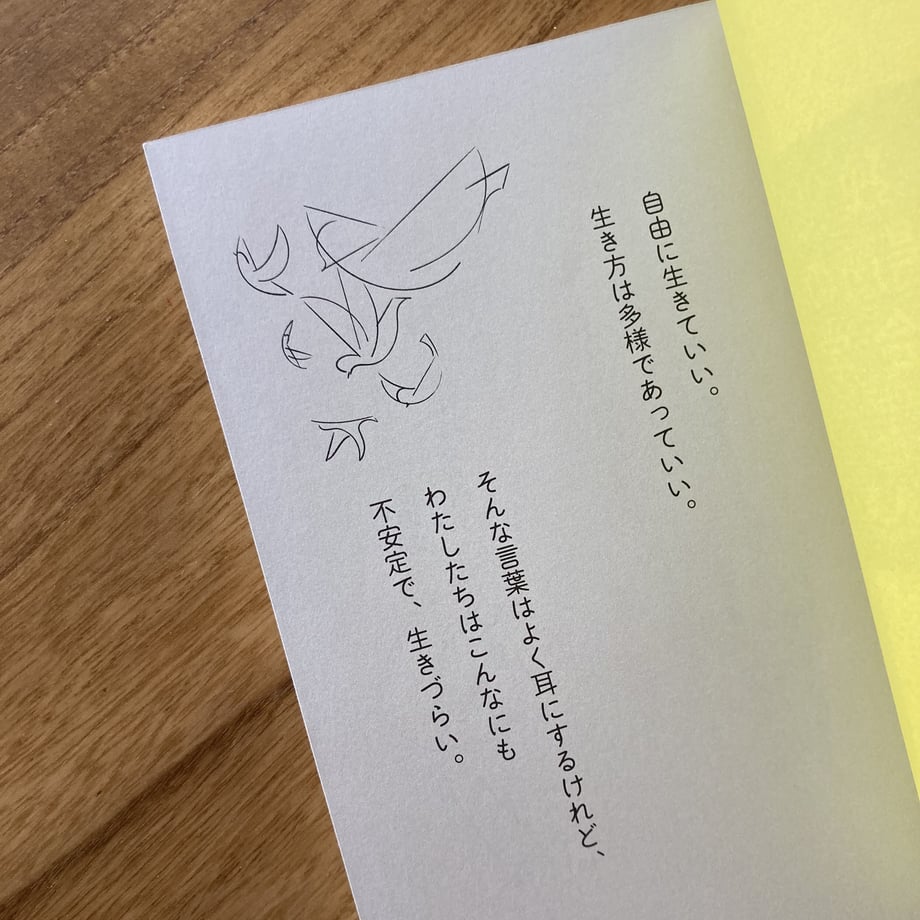 自由に生きていい。
生き方は多様であっていい。
そんな言葉はよく耳にするけれど、
わたしたちはこんなにも
不安定で、生きづらい。